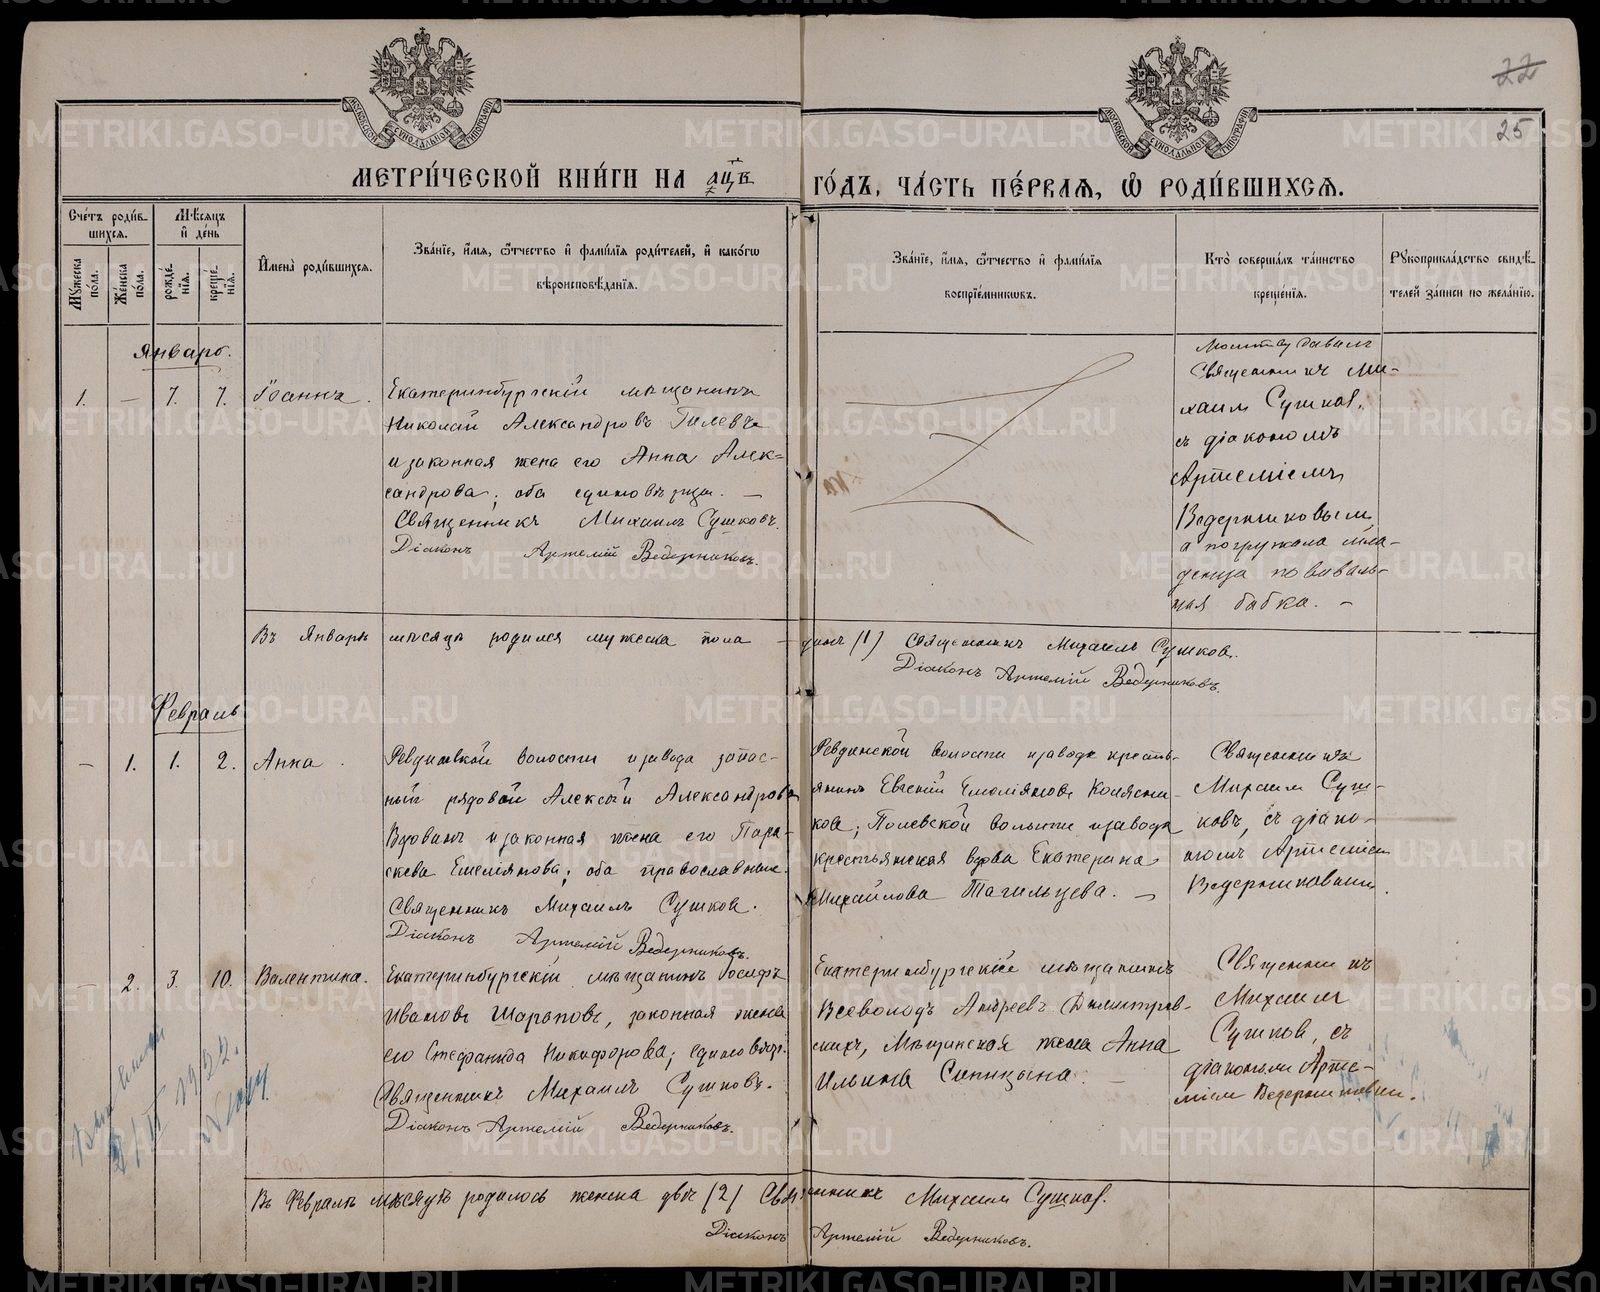 22
25
МОСКОВСКОЙ СѴНОДАЛЬНОЙ ТИПОГРАФІИ
МОСКОВСКОЙ СѴНОДАЛЬНОЙ ТИПОГРАФІИ
МЕТРИ́ЧЕСКОЙ КНИ́ГИ НА ҂АЦВ ГО́ДЪ, ЧА́СТЬ ПЕ́РВАѦ, Ѽ РОДИ́ВШИХСѦ.
Сче́тъ роди́в-
шихсѧ.
Мꙋжеска по́ла.
Же́нска по́ла.
Мѣ́сѧцъ
и҆ де́нь
рожде́-
нїѧ.
креще́-
нїѧ.
И҆мена̀ роди́вшихсѧ.
Зва́нїе, и҆́мѧ, ѻ҆́тчество и҆ фами́лїѧ роди́телей, и҆ како́гѡ
вѣроисповѣ́данїѧ.
Зва́нїе, и҆́мѧ, ѻ҆́тчество и҆ фами́лїѧ
воспрїе́мникѡвъ.
Кто̀ соверша́лъ та́инство
креще́нїѧ.
Рꙋкоприкла́дство свидѣ́-
телей за́писи по жела́нїю.
Январь.
1. — 7. 7. Іоаннъ.
Екатеринбургскій мѣщанинъ
Николай Александровъ Гилевъ
и законная жена его Анна Алек-
сандрова; оба единовѣрцы. —
Священникъ Михаилъ Сушковъ.
Діаконъ Артемій Ведерниковъ.
Молитву давалъ
Священникъ Ми-
хаилъ Сушковъ,
съ діакономъ
Артеміемъ
Ведерниковымъ,
а погружала мла-
денца повиваль-
ная бабка. —
Въ Январѣ мѣсяцѣ родился мужеска пола — одинъ (1) Священникъ Михаилъ Сушковъ.
Діаконъ Артемій Ведерниковъ.
Февраль
— 1. 1. 2. Анна.
Ревдинской волости и завода запас-
ный рядовой Алексѣй Александровъ
Вдовинъ и законная жена его Пара-
скева Емеліянова; оба православные.
Священникъ Михаилъ Сушковъ.
Діаконъ Артемій Ведерниковъ.
Ревдинской волости и завода кресть-
янинъ Евгеній Емеліяновъ Колясни-
ковъ; Полевской волости и завода
крестьянская вдова Екатерина
Михайлова Тагильцева. —
Священникъ
Михаилъ Суш-
ковъ, съ діако-
номъ Артеміемъ
Ведерниковымъ.
— 2. 3. 10. Валентина.
Екатеринбургскій мѣщанинъ Іосифъ
Ивановъ Шараповъ, законная жена
его Стефанида Никифорова; единовѣрц.
Священникъ Михаилъ Сушковъ.
Діаконъ Артемій Ведерниковъ.
Екатеринбургскій мѣщанинъ
Всеволодъ Андреевъ Димитрев-
скихъ, Мѣщанская жена Анна
Ильина Синицына. —
Священникъ
Михаилъ
Сушковъ, съ
діакономъ Арте-
міемъ Ведерниковымъ.
1922.
Въ Февралѣ мѣсяцѣ родилось женска двѣ (2) Священникъ Михаилъ Сушковъ.
Діаконъ Артемій Ведерниковъ.
METRIKI.GASO-URAL.RU